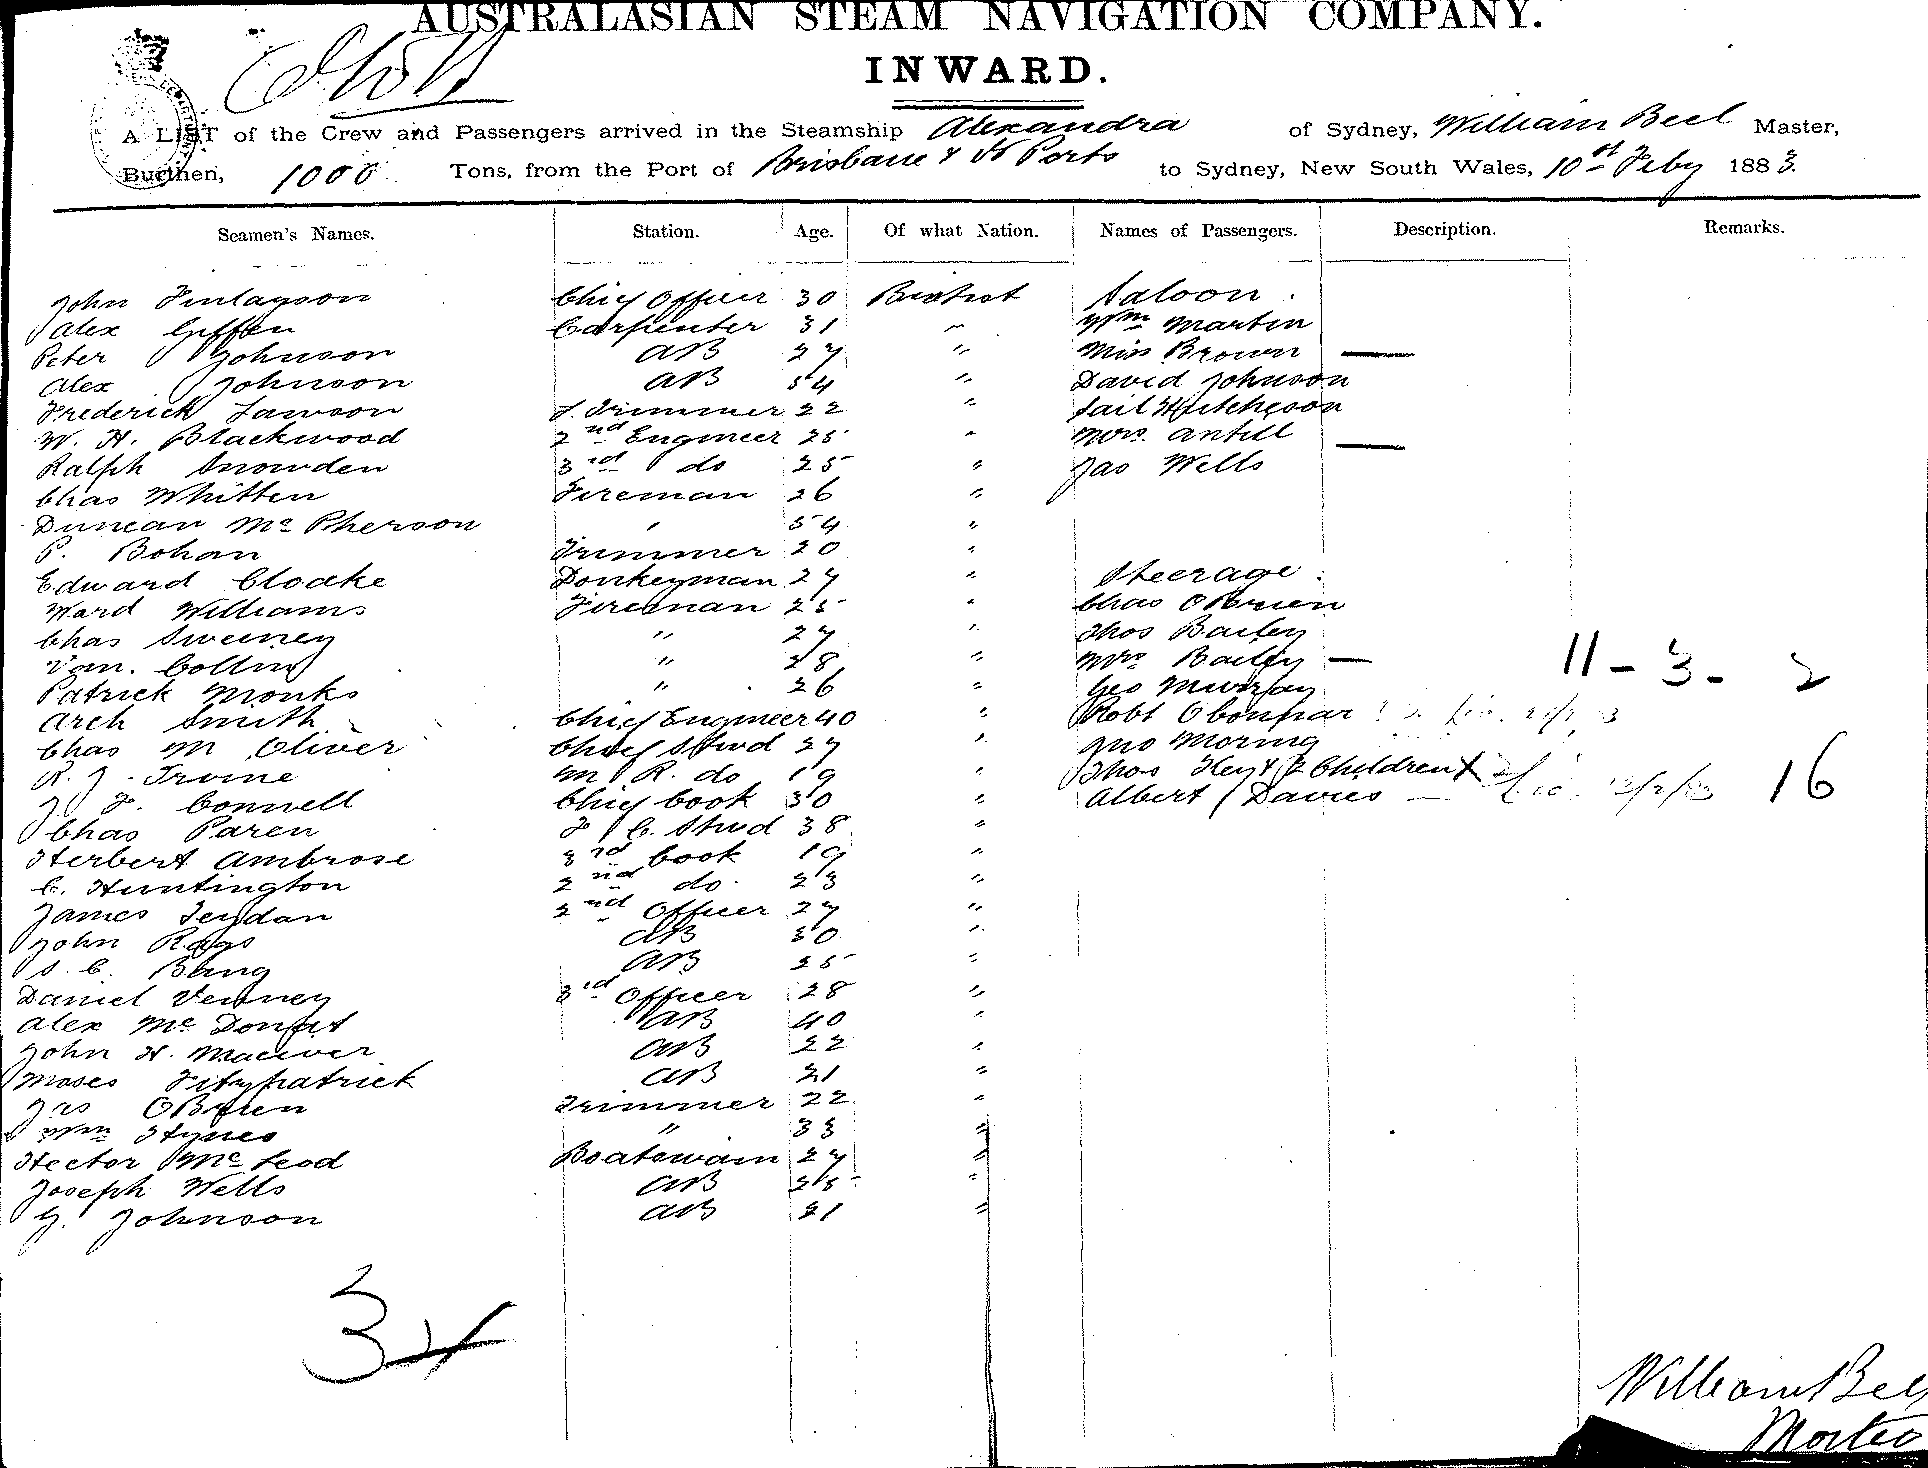 AUSTRALASIAN STEAM NAVIGATION COMPANY.
INWARD.
A LIST of the Crew and Passengers arrived in the Steamship Alexandra of Sydney, William Beel Master,
Burthen, 1000 Tons, from the Port of Brisbane & Ports to Sydney, New South Wales, 10 Feby 1883.
Seamen's Names. Station. Age. Of what Nation. Names of Passengers. Description. Remarks.
John Finlayson Chief Officer 30 British Saloon.
Alex Giffen Carpenter 31 " Wm Martin
Peter Johnson AB 27 " Miss Brown —
Alex Johnson AB 54 " David Johnson
Frederick Lawson Trimmer 22 " Hutcheson
W. H. Blackwood 2nd Engineer 25 " Mrs. Antill —
Ralph Snowden 3rd do 25 " Jas Wells
Chas Whitten Fireman 26 "
Duncan McPherson " 54 "
P. Bohan Trimmer 20 "
Edward Cloake Donkeyman 27 " Steerage.
Ward Williams Fireman 25 " Chas OBrien
Chas Sweeney " 27 " Thos Bailey
Collins " 28 " Mrs Bailey — 11 - 3 - 2
Patrick Monks " 26 " Geo Murray
Arch Smith Chief Engineer 40 " Robt
Chas M Oliver Chief Stwd 27 " Jno Moring
R. J. Irvine M R. do 19 " Thos Key & 2 Children
J. F. Connell Chief Cook 30 " Albert Davies — 16
Chas Paren F. C. Stwd 38 "
Herbert Ambrose 3rd Cook 19 "
C. Huntington 2nd do. 23 "
James Leydan 2nd Officer 27 "
John AB 30 "
S. C. Bang AB 25 "
Daniel Venney 3rd Officer 28 "
Alex Mc AB 40 "
John H. Maciver AB 22 "
Moses Fitzpatrick AB 21 "
Jas OBrien Trimmer 22 "
Wm Hynes " 33 "
Hector McLeod Boatswain 27 "
Joseph Wells AB 25 "
G. Johnson AB 21 "
34
William Beel
Master